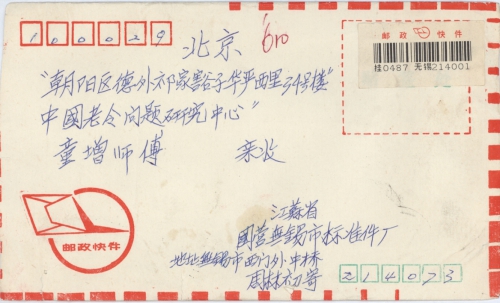 100029
北京
610
邮政 快件
桂0487 无锡214001
"朝阳区德外祁家豁子华严西里34号楼"
中國老令问题研究中心"
童增师傅 亲收
邮政快件
江蘇省
國营無錫市标准件厂
地址無锡市西门外中桥
周林初寄
214073